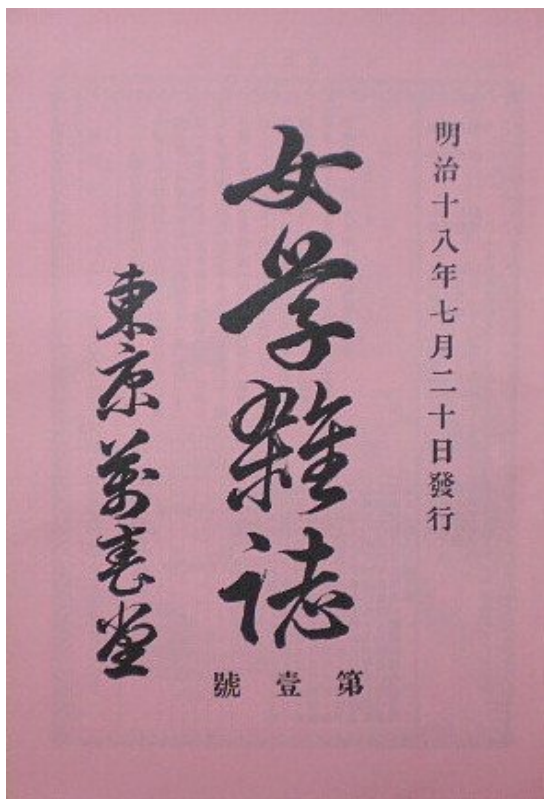 明治十八年七月二十日發行
女学雜誌
第壹號
東京萬春堂